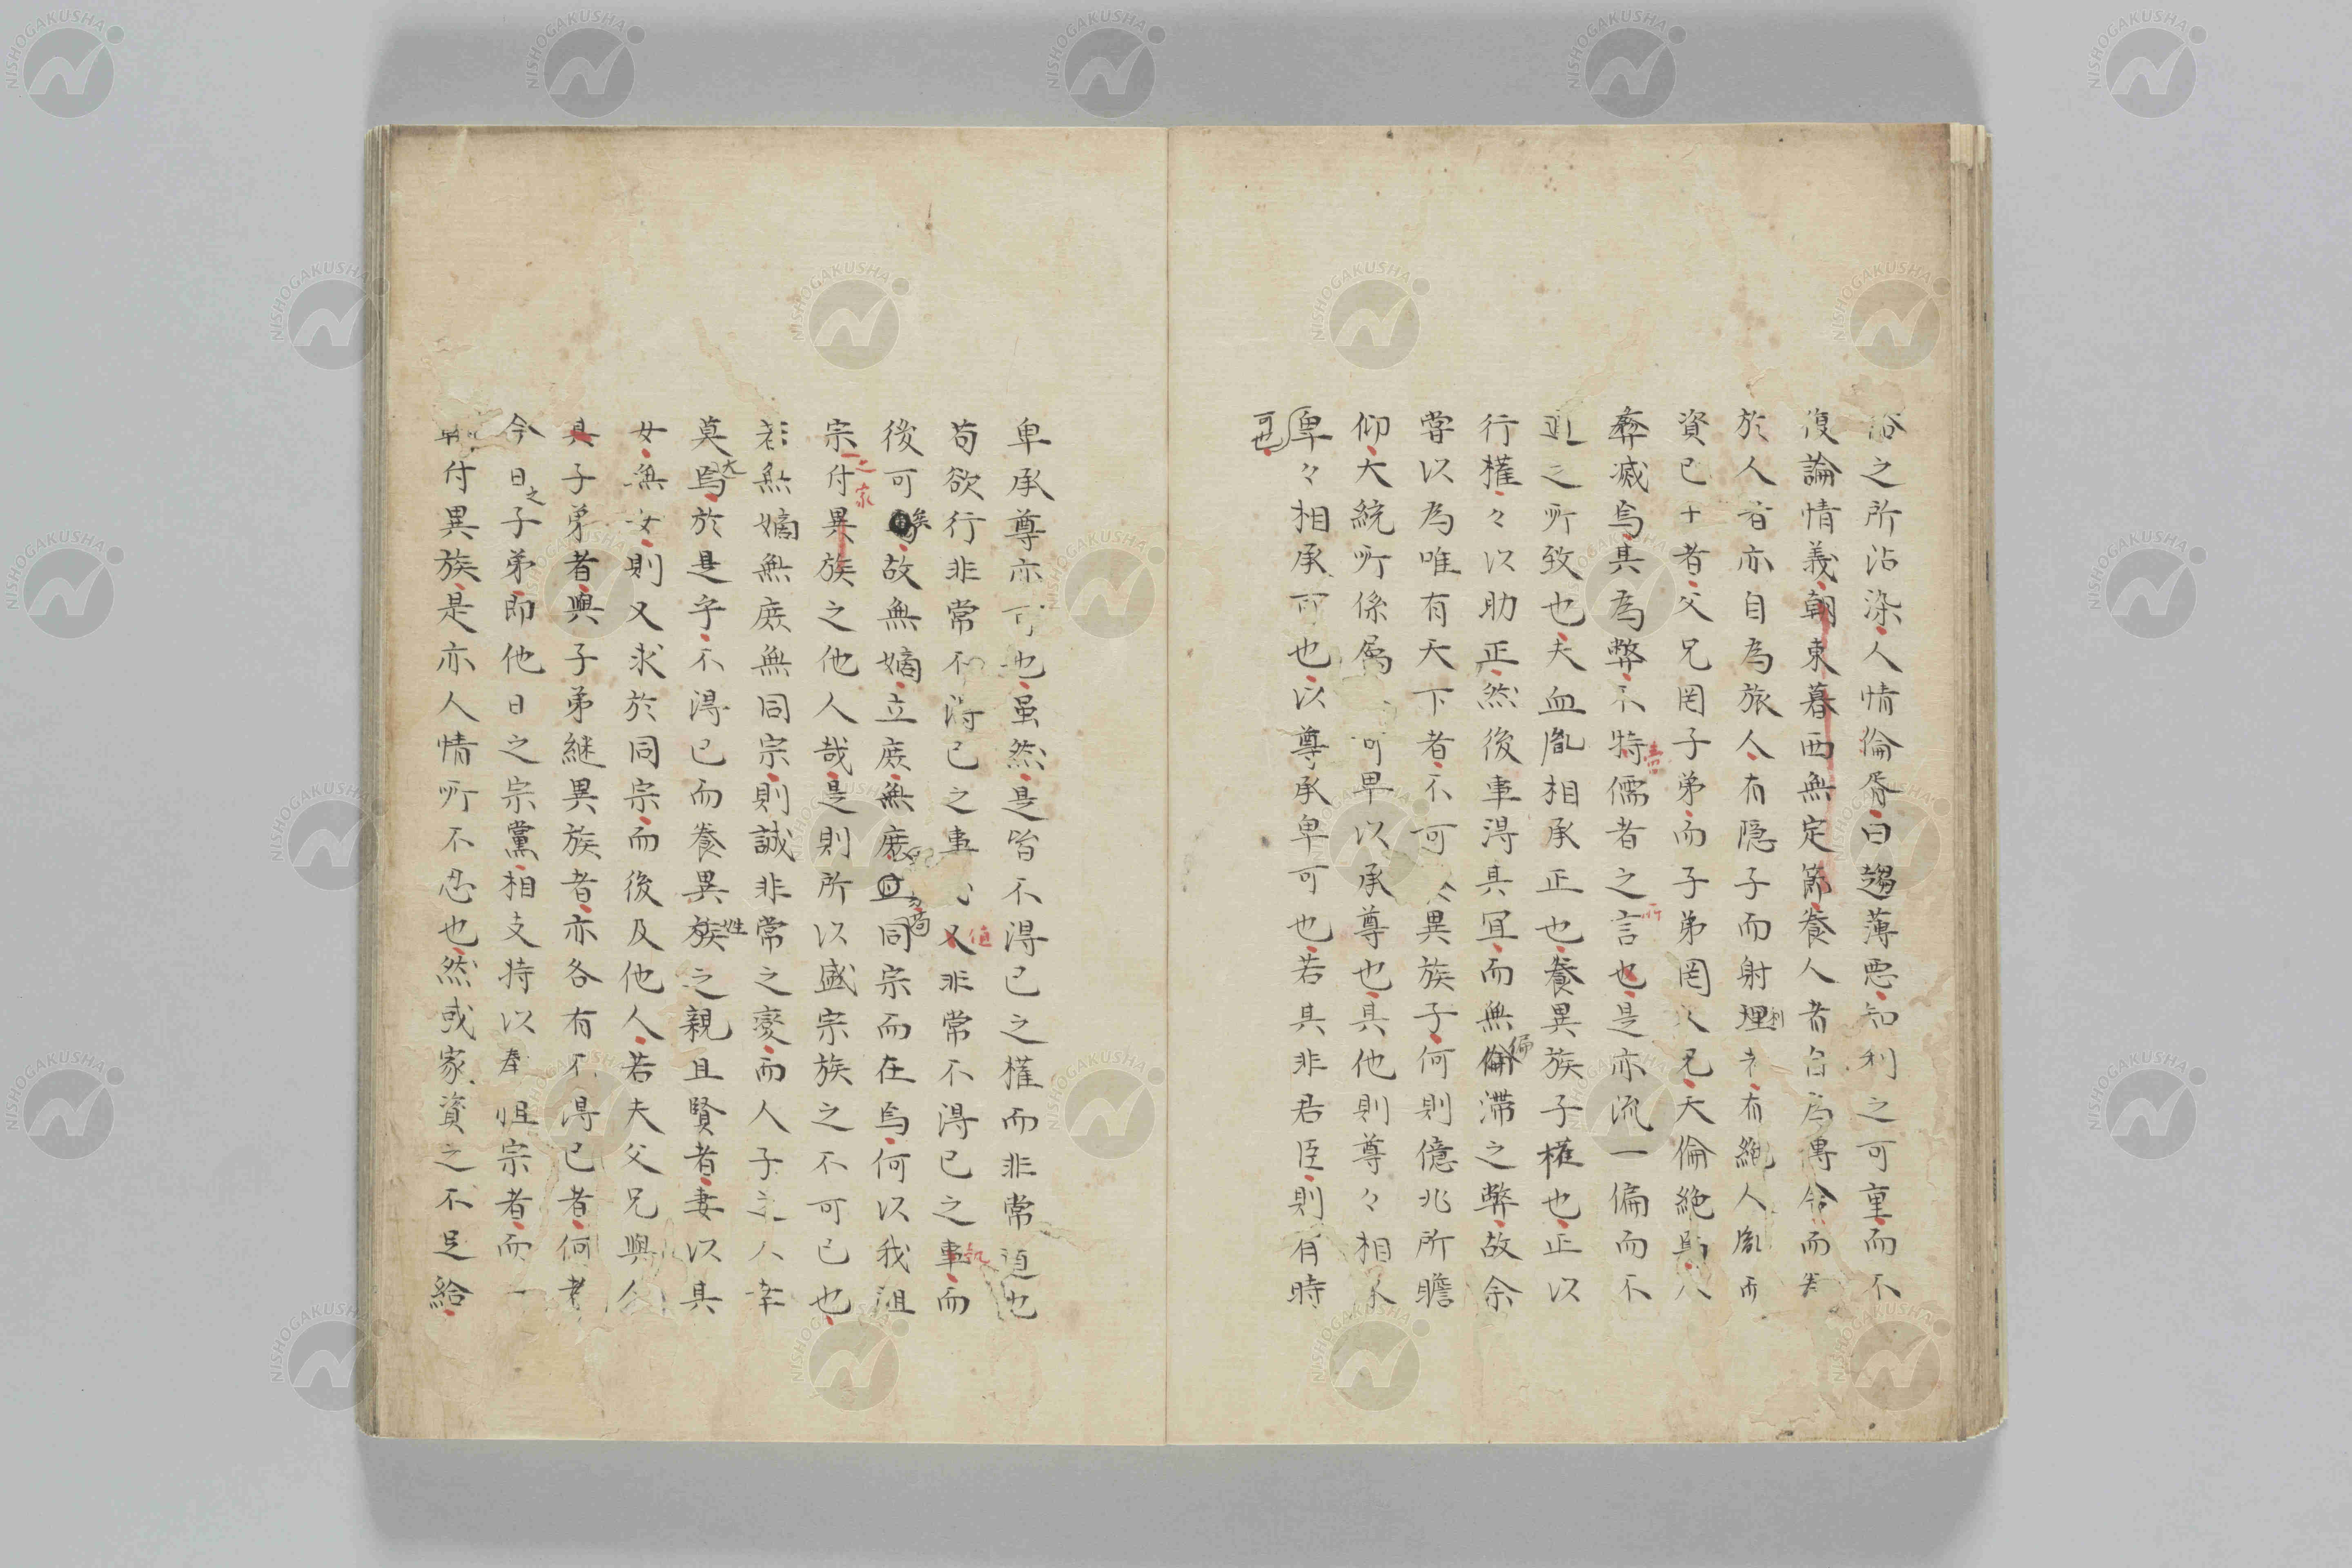 俗之所沾染人情倫胥曰趨薄惡知利之可重而不
復論情義朝東暮西無定篤養人者自為傳舍而
於人者亦自為旅人有隠子而射理利者有絶人胤而
資己十者父兄罔子弟而子弟罔父兄天倫絶焉八
彝滅焉其為弊不特儒者之言也是亦流一偏而不
正之所致也夫血胤相承正也養異族子権也正以
行権々以助正然後事得其宜而無倫偏滞之弊故余
嘗以為唯有天下者不可異族子何則億兆所瞻
仰大統所係属可卑以承尊也其他則尊々相承
卑々相承可也以尊承卑可也若其非君臣則有時
可也
卑承尊亦可也虽然是皆不得已之権而非常道也
苟欲行非常不得已之事又非常不得已之事而
後可矣故無嫡立庶無庶且同宗而在焉何以我祖
宗付異族之他人哉是則所以盛宗族之不可已也
之家
若無嫡無庶無同宗則誠非常之変而人子之人幸
莫大焉於是乎不得已而養異族姓之親且賢者妻以其
女無女則又求於同宗而後及他人若夫父兄與人
其子弟者與子弟継異族者亦各有不得已者何者
今日之子弟即他日之宗黨相支持以奉祖宗者而一
朝付異族是亦人情所不忍也然或家資之不足給
NISHOGAKUSHA